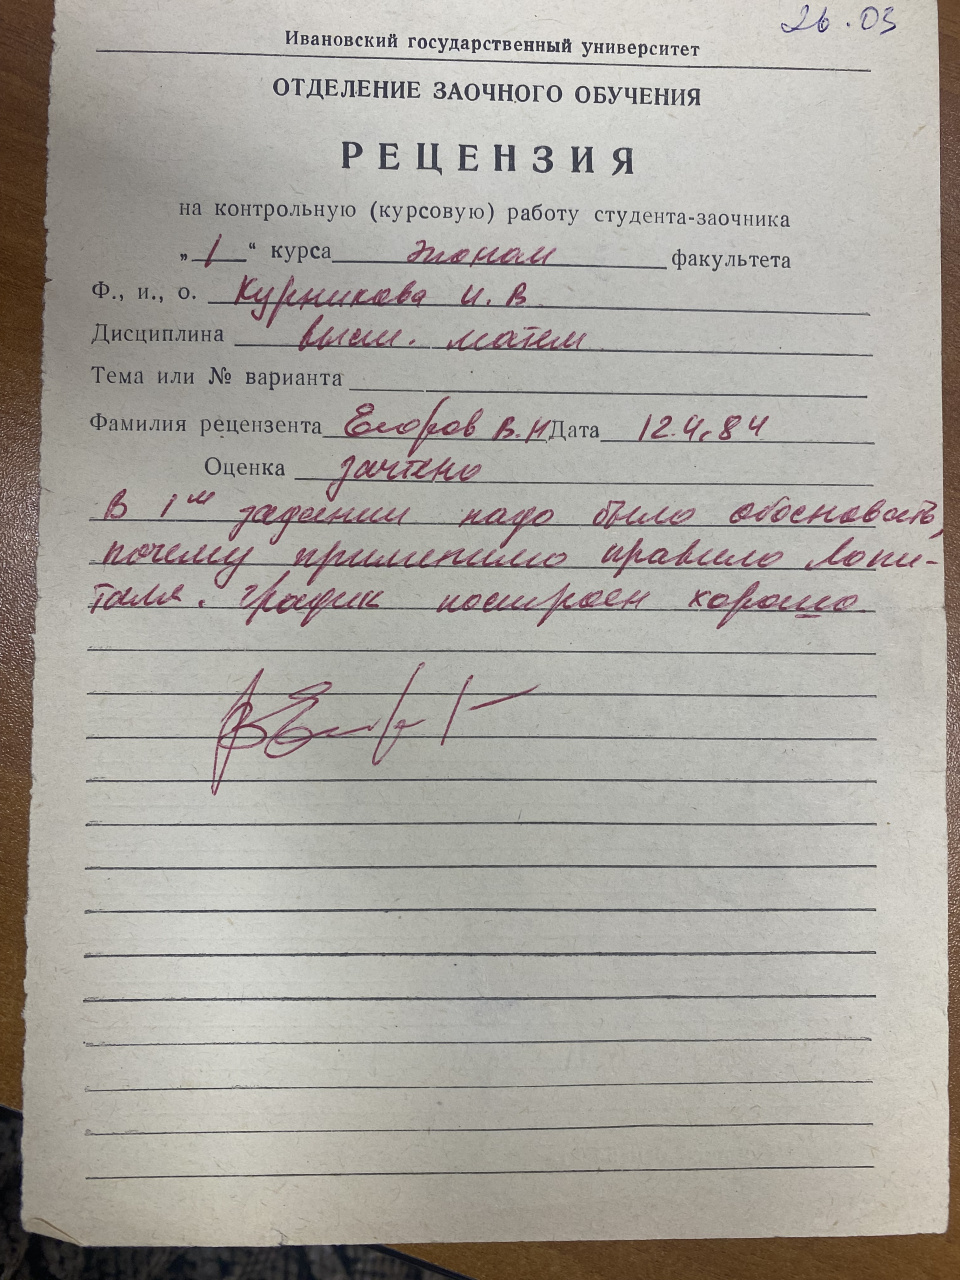 26.03
Ивановский государственный университет
ОТДЕЛЕНИЕ ЗАОЧНОГО ОБУЧЕНИЯ
РЕЦЕНЗИЯ
на контрольную (курсовую) работу студента-заочника
„ 1 “ курса эконом факультета
Ф., и., о. Курникова И. В
Дисциплина высш. матем
Тема или № варианта
Фамилия рецензента Егоров В.Н Дата 12.4.84
Оценка зачтено
В 1ом задании надо было обосновать,
почему применимо правило Лопи-
таля. График построен хорошо